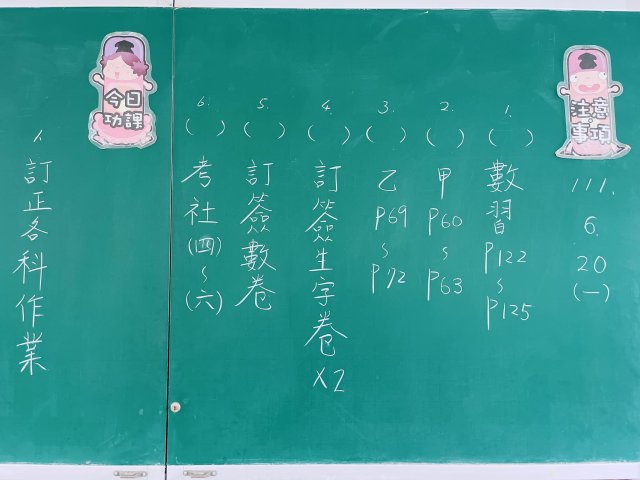 注意事項
111.
6.
20
(一)
1.
( )
數習
P122
~
P125
2.
( )
甲
P60
~
P63
3.
( )
乙
P69
~
P72
4.
( )
訂簽生字卷
x2
5.
( )
訂簽數卷
6.
( )
考社(四)~(六)
今日功課
1.
訂正各科作業